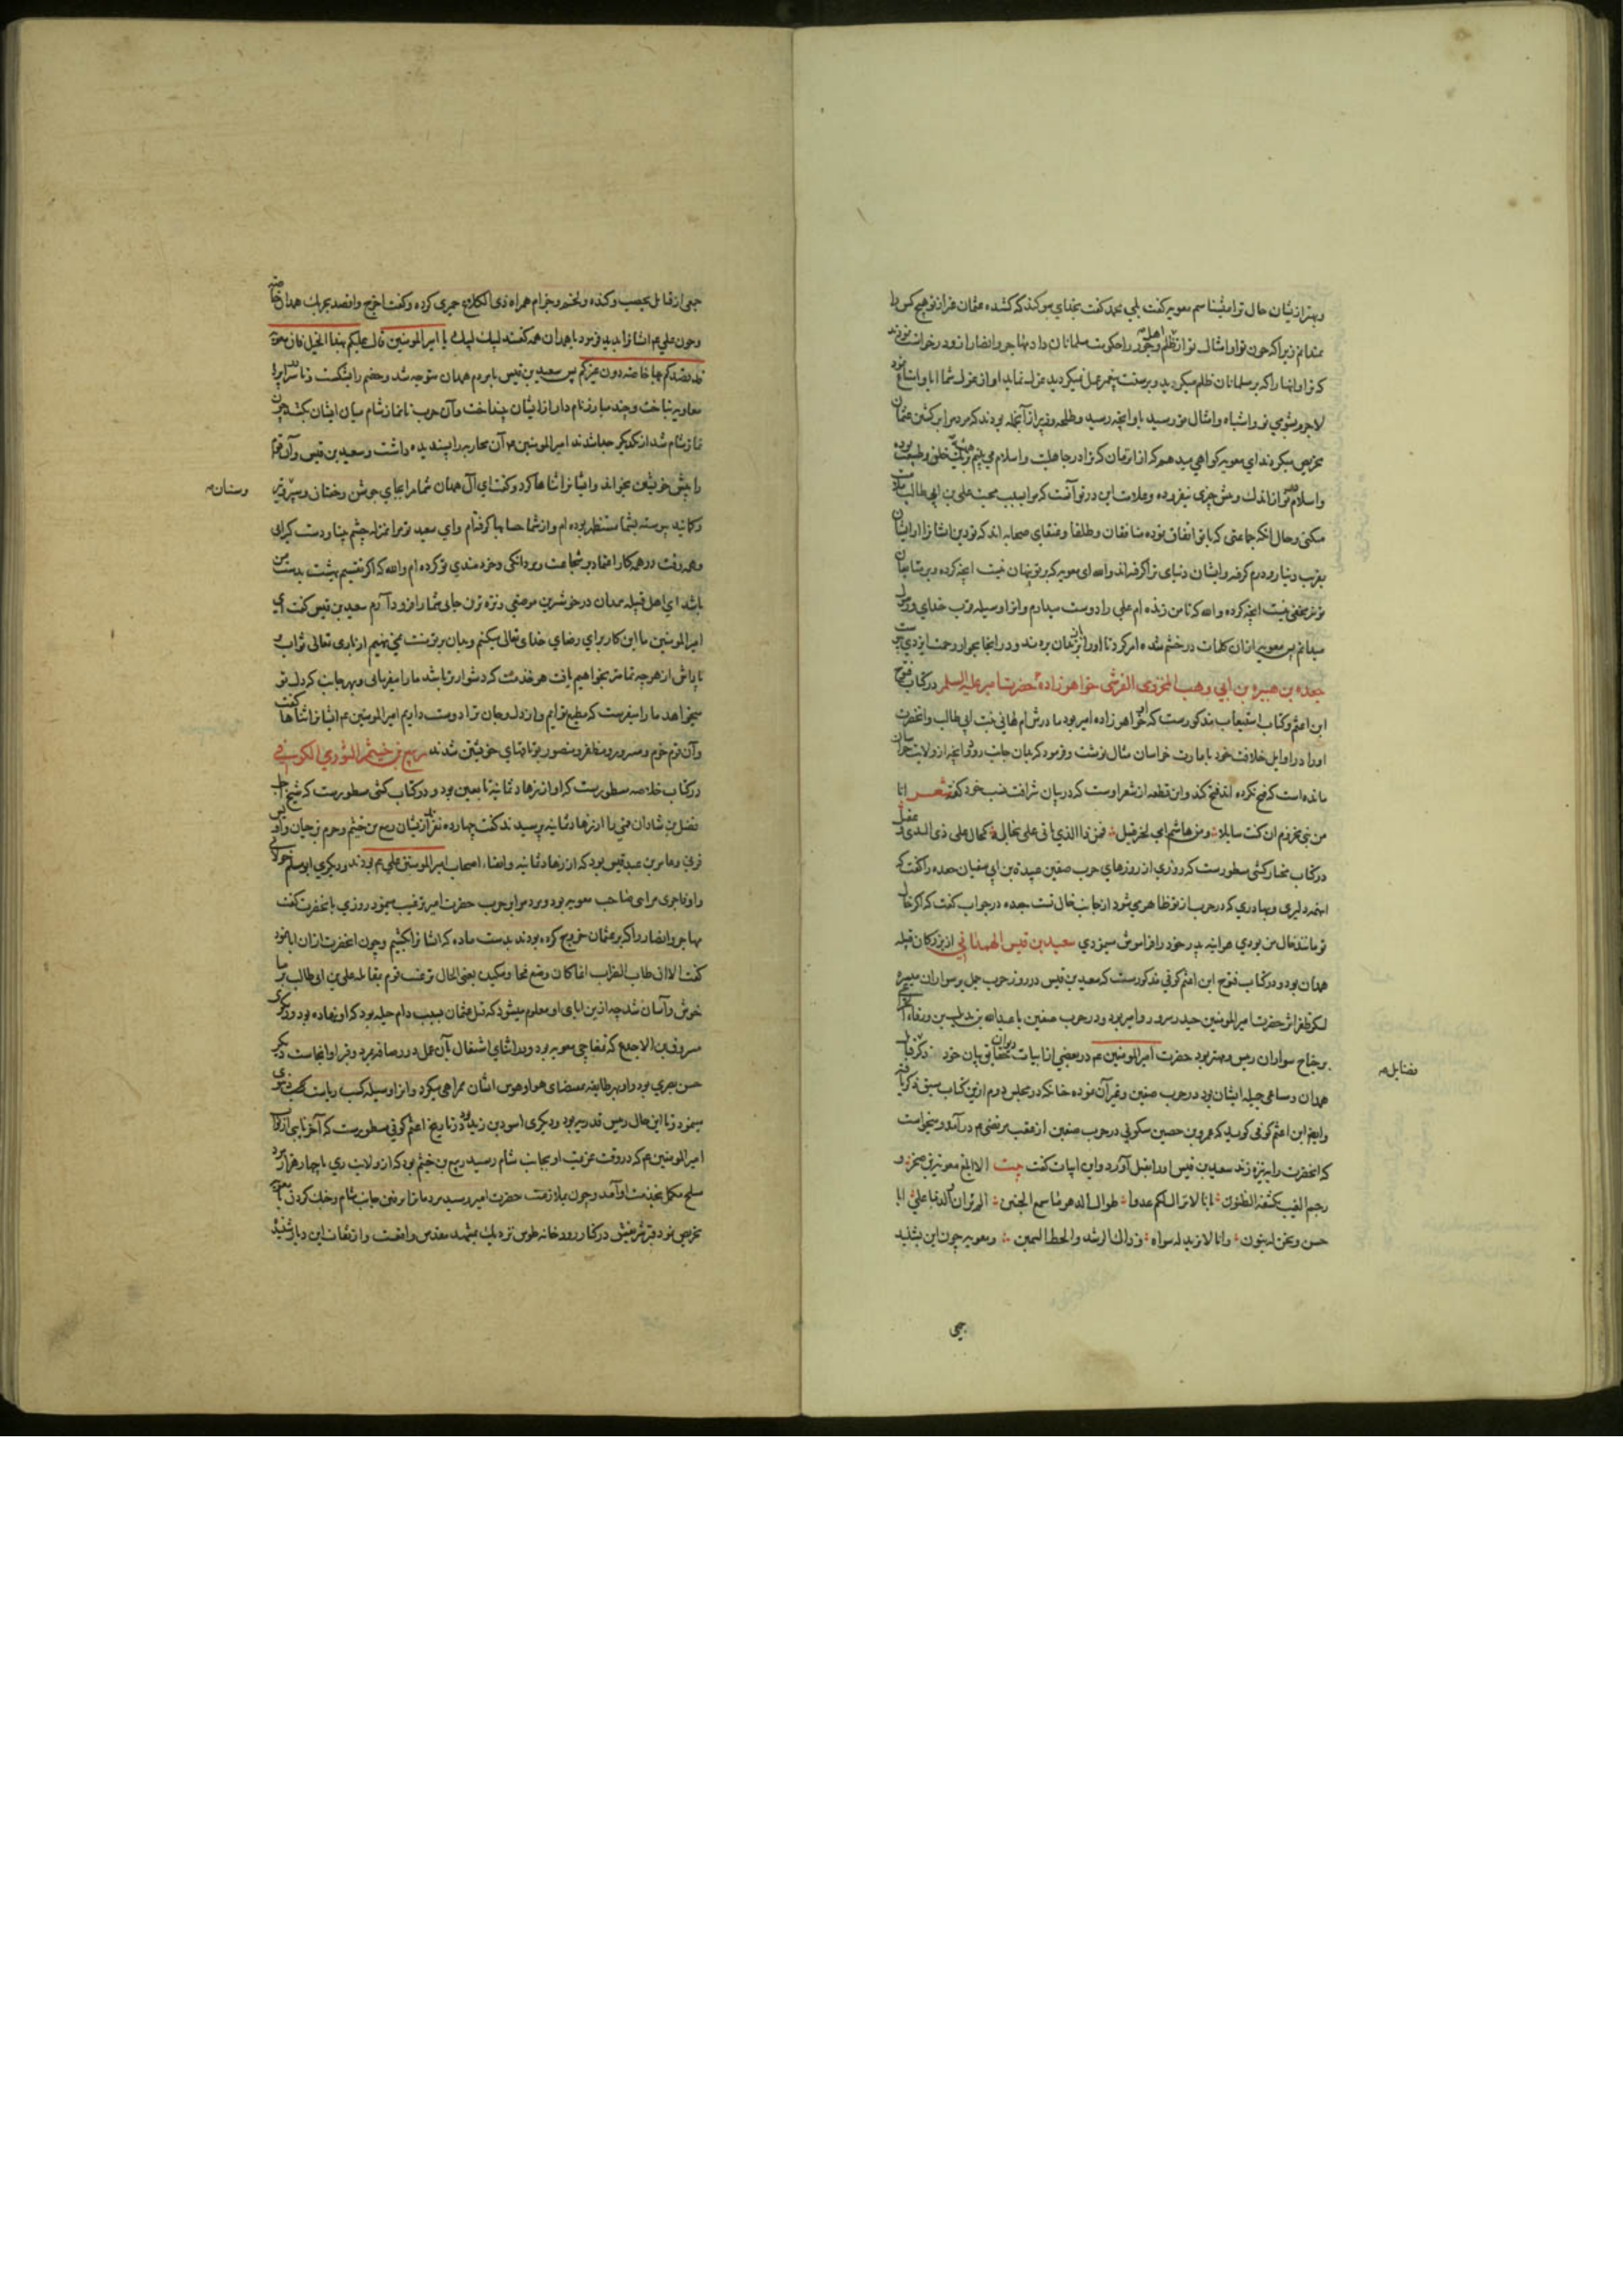 وبهتر از نیشان حال ترا میشناسم معویه کفت بلی بعد کفت بخدای سوکند که کشنده عثمان غیر از تو هیچ کس را
نمیدانم زیرا که چون تو و امثال تو از اهل ظلم وجور را حکومت مسلمانان داد مهاجر وانصار از و درخواست نمودند
که ترا و اینها را که بر مسلمانان ظلم میکردید وبر سنت پیغمبر عمل نمیکردید عزل نماید او از عزل شما ابا و امتناع نمود
لاجرم بشومی تو و اشباه و امثال تو رسید باو آنچه رسید وطلحه وزبیر از آنجمله بودند که مردم را بر کشتن عثمان
تحریص میکردند ای معویه کواهی میدهم که از آن زمان که ترا در جاهلیت و اسلام می بینم بر یک خلق وطبیعت بوده
واسلام در تو از اندک وبیش چیزی نیفزوده وعلامت این در تو آنست که مرا بسبب محبت علی بن ابی طالب ملامت
میکنی وحال آنکه جماعتی که با تو اتفاق نموده منافقان وطلقا وعتقای صحابه اند که تو دین ایشانرا از ایشان
بفریب دینار ودرم کرفته وایشان دنیای ترا کرفته اند والله ای معویه که بر تو پنهان نیست آنچه کرده وبر متابعان
تو نیز مخفی نیست آنچه کرده والله که تا من زنده ام علی را دوست میدارم وانرا وسیله قرب خدای ورسول
میدانم پس معویه از آن کلمات در خشم شده امر کرد تا او را بزندان بردند ودر آنجا بجوار رحمت ایزدی پیوست
جعده بن هبیره بن ابی وهب المخزومی القرشی خواهر زاده حضرت امیر علیه السلم در کتاب فتوح
ابن اعثم وکتاب استیعاب مذکورست که او خواهر زاده امیر بود مادرش ام هانی بنت ابی طالب وآنحضرت
او را در اوایل خلافت خود بامارت خراسان مثال نوشت وفرمود که بدان جانب رود وآنچه از ولایت خراسان
مانده است که فتح نکرده اند فتح کند واین قطعه از شعر اوست که در بیان شرافت نسب خود کفته شعر انا
من بنی مخزوم ان کنت سایلا ومن هاشم امی لخیر قبیل فمن ذا الذی یاتی علی بخاله کخالی علی ذی الندی وعقیل
در کتاب مختار کشی مسطورست که روزی از روزهای حرب صفین عتبة بن ابی سفیان جعده را کفت که
اینهمه دلیری وبهادری که در حرب از تو ظاهر می شود از جانب خال تست جعده در جواب کفت که اکر خال
تو مانند خال من بودی هر اینه پدر خود را فراموش میکردی سعید بن قیس الهمدانی از بزرکان قبیله
همدان بود ودر کتاب فتوح ابن اعثم کوفی مذکورست که سعید بن قیس در روز حرب جمل بر سواران میسره
لشکر ظفر اثر حضرت امیر المومنین حیدر سرور وامیر بود ودر حرب صفین با عبدالله بن بدیل بن ورقاء الخزاعی
بر جناح سواران رئیس ومهتر بود حضرت امیر المومنین ع م در بعضی از ابیات دیوان حقایق بیان خود ذکر فضایل قبیله
همدان ومساعی جمیله ایشان بود در حرب صفین وغیر آن نموده چنانکه در مجلس دوم ازین کتاب سبق ذکر یافته
وایضا ابن اعثم کوفی کوید که عمرو بن حصین سکونی در حرب صفین از عقب مرتضی ع م در آمد ومیخواست
که آنحضرت را به نیزه زند سعید بن قیس او را بقتل آورد واین ابیات کفت بیت الا ابلغ معویة بن صخر و
رجم الغیب یکشفه الظنون بانا لا نزال لکم عدوا طوال الدهر ما سمع الحنین الم تر ان والدنا علی ابا
حسن ونحن له بنون وانا لا نرید له سواه وذاک الرشد والحظ السمین ومعویه چون این بشنید
جمعی
جمعی از قبایل یحصب وکنده ولخم وجذام همراه ذی الکلاع حمیری کرده وکفت اخرج واقصد بحربک همدان خاصه
وچون علی ع م ایشانرا بدید فرمود یا همدان همه کفتند لبیک لبیک یا امیر المومنین قال علیکم بهذا الخیل فان معویة
قد قصدکم بها خاصه دون غیرکم پس سعید بن قیس با مردم همدان متوجه شد وخصم را بشکست وتا در سراپرده
معاویه بتاخت وچند مبارز نام دار از ایشان بینداخت وآن حرب تا نماز شام میان ایشان بکشید چون
نماز شام شد از یکدیکر جدا شدند امیر المومنین ع م آن محاربه را پسندیده داشت وسعید بن قیس وآن قوم
را پیش خویشتن بخواند وایشانرا ثناها کرد وکفت ای آل همدان شما مرا بجای جوشن وخفتان وسپر وتیر
وکمانید پیوسته بشما مستظهر بوده ام واز شما حسابها کرفته ام وای سعید تو مرا بمنزله چشم بینا ودست کیرای
وهمه وقت در همه کار اعتماد بر شجاعت ومردانکی وخردمندی تو کرده ام والله که اکر تقسیم بهشت بدست من
باشد ای اهل قبیله همدان در خوشترین موضعی ونزه ترین جای شما را فرود آرم سعید بن قیس کفت ای
امیر المومنین ما این کار برای رضای خدای تعالی میکنیم وبدان بر تو منت نمی نهیم از باری تعالی ثواب و
پاداش از هر چه تمامتر بخواهیم یافت هر خدمت که دشوارتر باشد ما را میفرمای وبهر جانب که دل تو
میخواهد ما را میفرست که مطیع توایم واز دل وجان ترا دوست داریم امیر المومنین ع م ایشانرا ثناها کفت
وآن قوم خرم ومسرور ومظفر ومنصور بوثاقهای خویشتن شدند ربیع بن خیثم الثوری الکوفی
در کتاب خلاصه مسطورست که او از زهاد ثمانیه تابعین بود ودر کتاب کشی مسطورست که شیخ اجل
فضل بن شاذان قمی را از زهاد ثمانیه پرسیدند کفت چهار نفر از ایشان ربیع بن خیثم وهرم بن حیان واویس
قرنی وعامر بن عبد قیس بود که از زهاد ثمانیه واتقیاء اصحاب امیر المومنین علی ع م بودند ودیکری ابو مسلم خولانی
واو فاجری مرایی صاحب معویه بود ومردم را بر حرب حضرت امیر ترغیب مینمود روزی بآنحضرت کفت
مهاجر وانصار را که بر عثمان خروج کرده بودند بدست ما ده که ایشانرا بکشیم وچون آنحضرت از آن ابا نمود
کفت الآن طاب الضراب
خوش وآسان شد چه ازین ابای او معلوم میشود که قتل عثمان بسبب دام حیله بود که او نهاده بود ودیکری
مسروق بن الاجدع که تمغاچی معویه بود ودر اثنای اشتغال آن عمل در رصافه مرد وقبر او آنجاست دیکر
حسن بصری بود واو بهر طایفه بمقتضای هوا وهوس ایشان همراهی میکرد وانرا وسیله کسب ریاست دنیوی
مینمود وتا این حال رئیس قدریه بود ودیکری اسود بن زید بود در تاریخ اعثم کوفی مسطورست که آخر نایبی از نواب
امیر المومنین ع م که در وقت عزیمت او بجانب شام رسید ربیع بن خیثم بود که از ولایت ری با چهار هزار مرد
مسلح مکمل بخدمت او آمد وچون بملازمت حضرت امیر رسید مردمانرا بر رفتن جانب شام وجنک کردن با معویه
تحریص نمود قبر شریفش در کنار رودخانه طوس نزدیک بمشهد مقدس واقعست واز ثقات این دیار شنیده
وسنان صح
فضایل صح